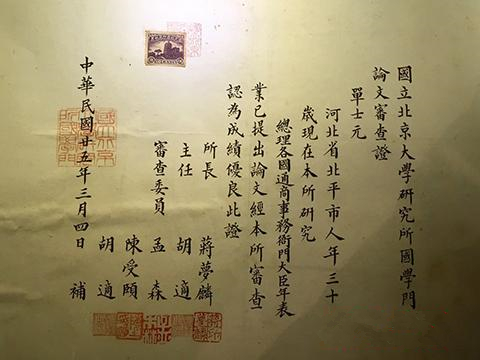 國立北京大學研究所國學門
論文審查證
單士元
河北省北平市人年三十
歲現在本所研究
總理各國通商事務衙門大臣年表
業已提出論文經本所審查
認為成績優良此證
所長 蔣夢麟
主任 胡適
審查委員 孟森
陳受頤
胡適
中華民國廿五年三月四日 補